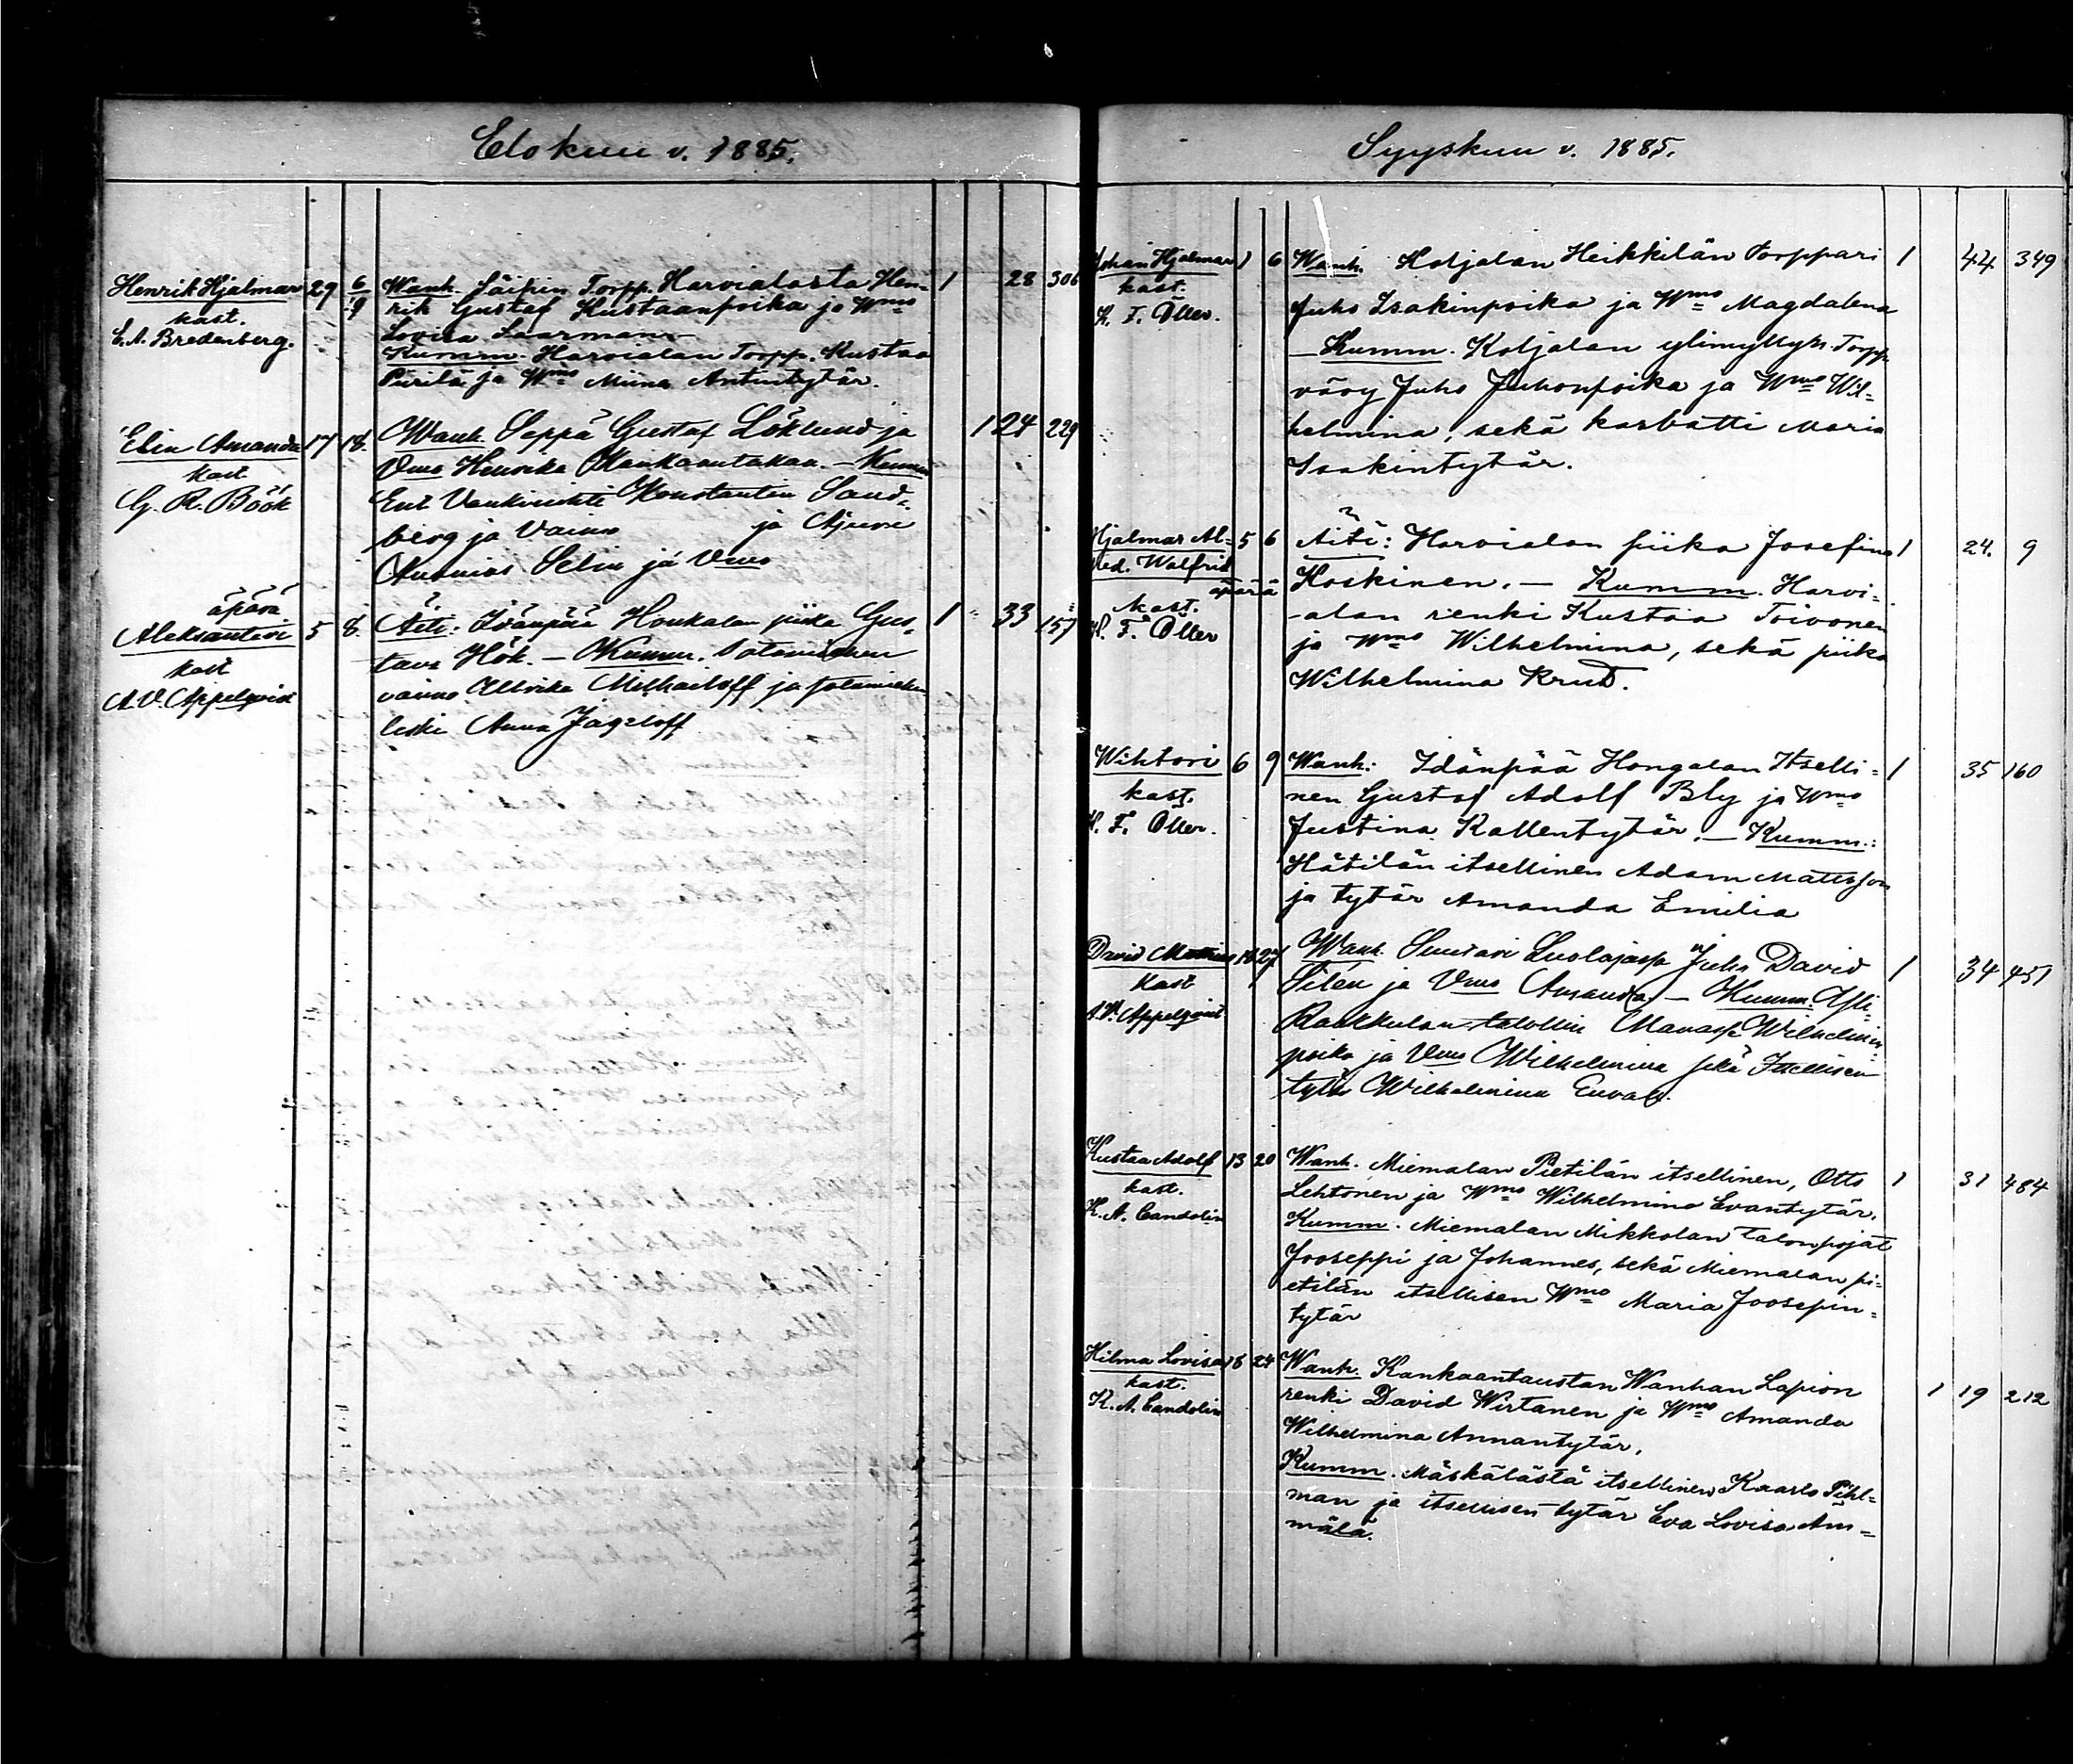 Elokuu v. 1885.
Henrik Hjalmar 29 6/9 Wanh. Säikin Torpp. Harvialasta Hen- 1 28 306
kast. rik Gustaf Kustaanpoika ja Wmo
E. A. Bredenberg. Lovisa Saarman
Kumm. Harvialan Torpp. Kustaa
Piirilä ja Wmo Miina Antintytär.
Elin Amanda 17 18. Wanh. Seppä Gustaf Löklund ja 1 24 229
kast Vmo Henrika Kankaantakaa. — Kumm.
G. R. Böök Ent Vankivahti Konstantin Sand-
berg ja Vaimo ja
Selin ja Vmo
äpärä
Aleksanteri 5 8. Äiti: Idänpää Honkalan piika Gus- 1 33 157
kast tava Hök. — Kumm. Sotamiehen
A. V. Appelqvist vaimo Ulrika Mithailoff ja sotamiehen
leski Anna Jageloff
Syyskuu v. 1885.
Johan Hjalmar 1 6 Wanh. Koljalan Heikkilän Torppari 1 44 349
kast. Juho Isakinpoika ja Wmo Magdalena
K. F. Öller. — Kumm. Koljalan ylimyllyn Torpp.
vävy Juho Juhonpoika ja Wmo Wil-
helmina, sekä karbatti Maria
Isakintytär.
Hjalmar Al- 5 6 Äiti: Harvialan piika Josefina 1 24. 9
fred. Walfrid Koskinen. — Kumm. Harvi-
äpärä
kast. -alan renki Kustaa Toivonen
K. F. Öller ja Wmo Wilhelmina, sekä piika
Wilhelmina Krud.
Wihtori 6 9 Wanh: Idänpää Hongalan Itselli- 1 35 160
kast. nen Gustaf Adolf Bly ja Wmo
K. F. Öller. Justina Kallentytär. — Kumm.:
Hätilän itsellinen Adam Mattsson
ja tytär Amanda Emilia
David 27 Wanh. Juho David 1 34 451
kast Silén ja Vmo Amanda — Kumm. Yli-
A. V. Appelqvist Raakkulan talollin Manasse Wilhelmin-
poika ja Vmo Wilhelmina sekä Itsellisen
tytär Wilhelmiina
Kustaa Adolf 13 20 Wanh. Miemalan Pietilän itsellinen, Otto 1 31 484
kast. Lehtonen ja Wmo Wilhelmina Evantytär.
K. A. Candolin Kumm. Miemalan Mikkolan talonpojat
Jooseppi ja Johannes, sekä Miemalan pi-
etilän itsellisen Wmo Maria Joosepin-
tytär
Hilma Lovisa 18 24 Wanh. Kankaantaustan Wanhan Lapion
kast. renki David Wirtanen ja Wmo Amanda 1 19 212
K. A. Candolin Wilhelmina Annantytär.
Kumm. Mäskälästä itsellinen Kaarlo Pihl-
man ja itsellisen tytär Eva Lovisa Äm-
mälä.